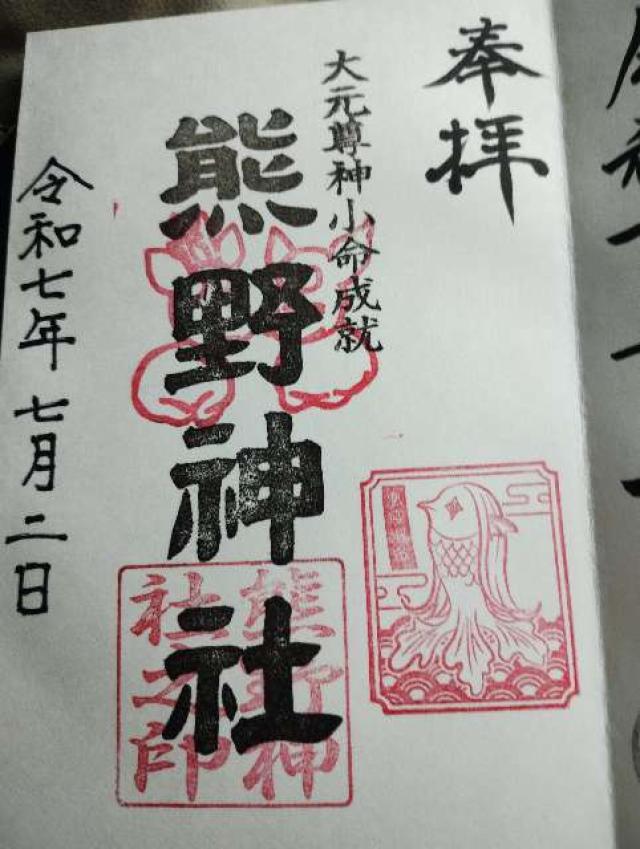 奉拝
大元尊神小命成就
熊野神社
熊野神社之印
令和七年 七月二日